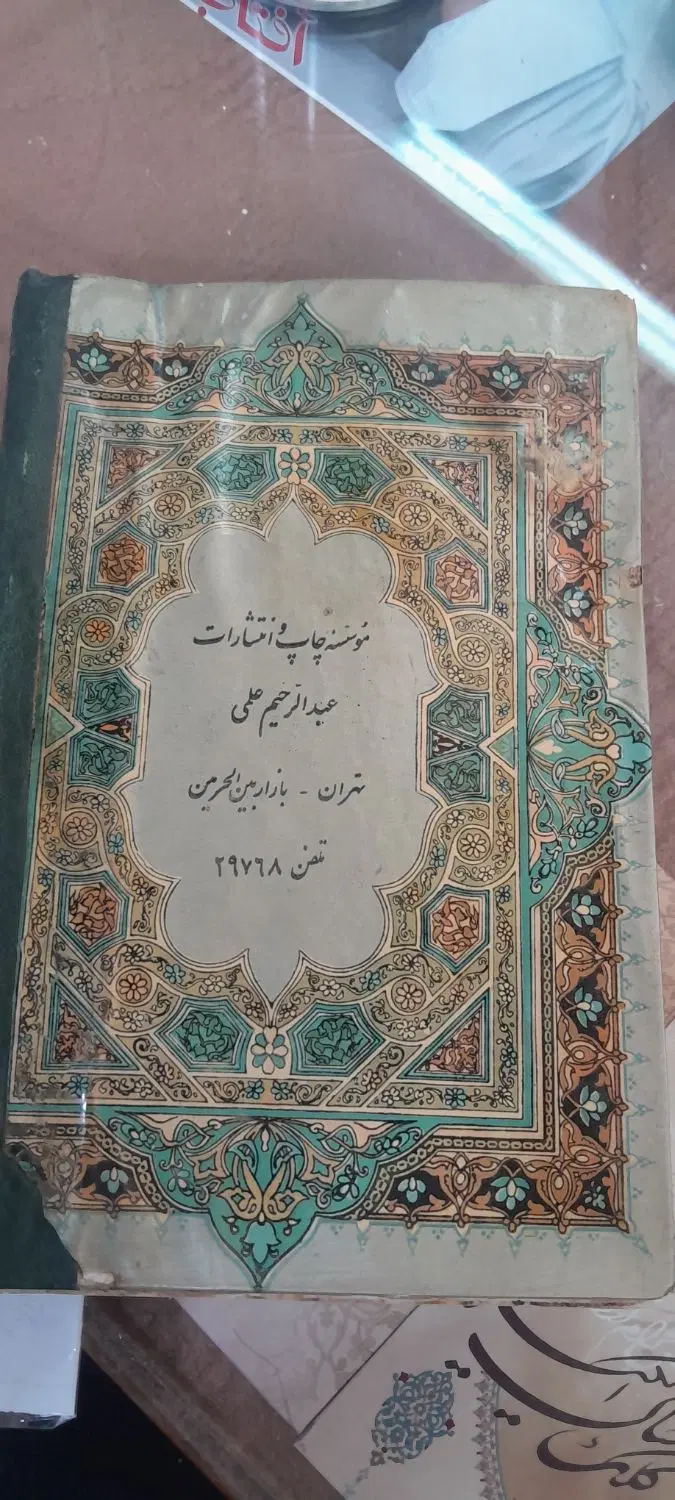 آفتاب
مؤسسه چاپ و انتشارات
عبدالرحیم علمی
تهران - بازار بین الحرمین
تلفن ۲۹۷۶۸